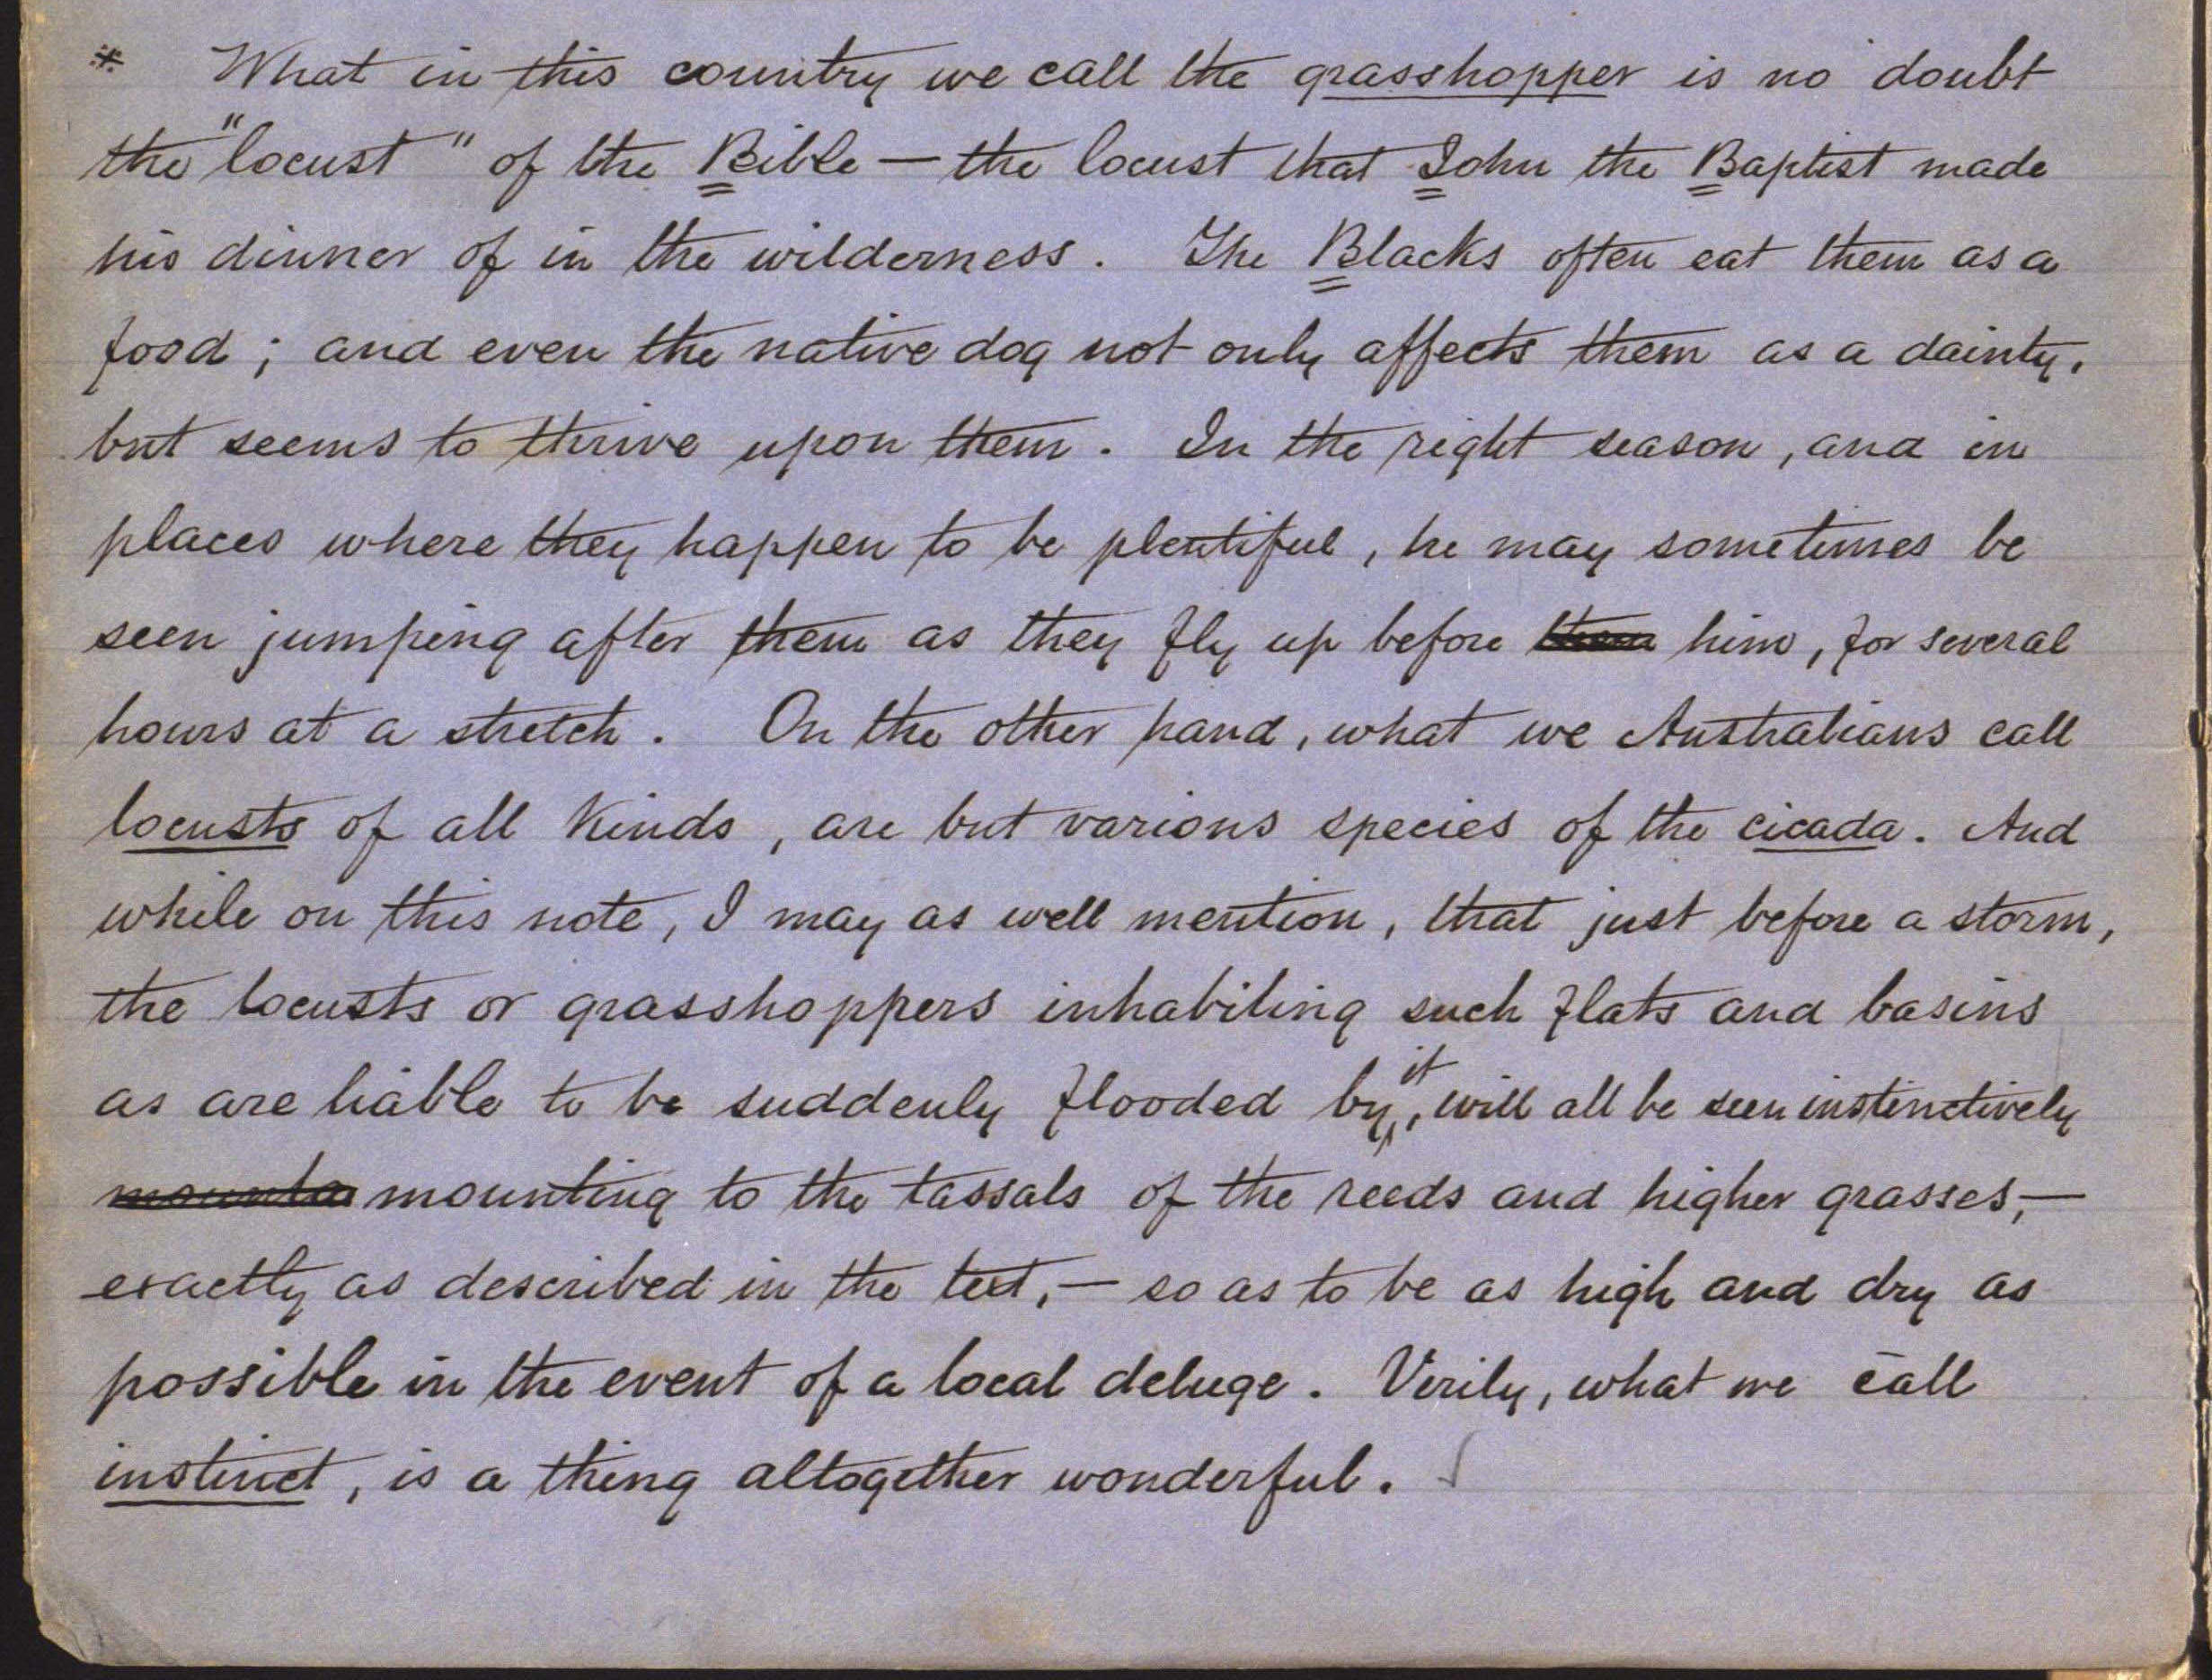 * What in this country we call the grasshopper is no doubt
the "locust" of the Bible — the locust that John the Baptist made
his dinner of in the wilderness. The Blacks often eat them as a
food; and even the native dog not only affects them as a dainty,
but seems to thrive upon them. In the right season, and in
places where they happen to be plentiful, he may sometimes be
seen jumping after them as they fly up before them him, for several
hours at a stretch. On the other hand, what we Australians call
locusts of all kinds, are but various species of the cicada. And
while on this note, I may as well mention, that just before a storm,
the locusts or grasshoppers inhabiting such flats and basins
as are liable to be suddenly flooded by it, will all be seen instinctively
mounting to the tassals of the reeds and higher grasses,—
exactly as described in the text,— so as to be as high and dry as
possible in the event of a local deluge. Verily, what we call
instinct, is a thing altogether wonderful.